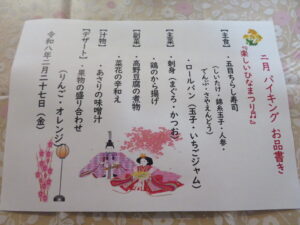 二月 バイキング お品書き
『楽しいひなまつり♬』
【主食】
・五目ちらし寿司
(しいたけ・錦糸玉子・人参・
でんぶ・さやえんどう)
・ロールパン(玉子・いちごジャム)
【主菜】
・刺身(まぐろ・かつお)
・鶏のから揚げ
【副菜】
・高野豆腐の煮物
・菜花の辛和え
【汁物】
・あさりの味噌汁
【デザート】
・果物の盛り合わせ
(りんご・オレンジ)
令和八年二月二十七日(金)